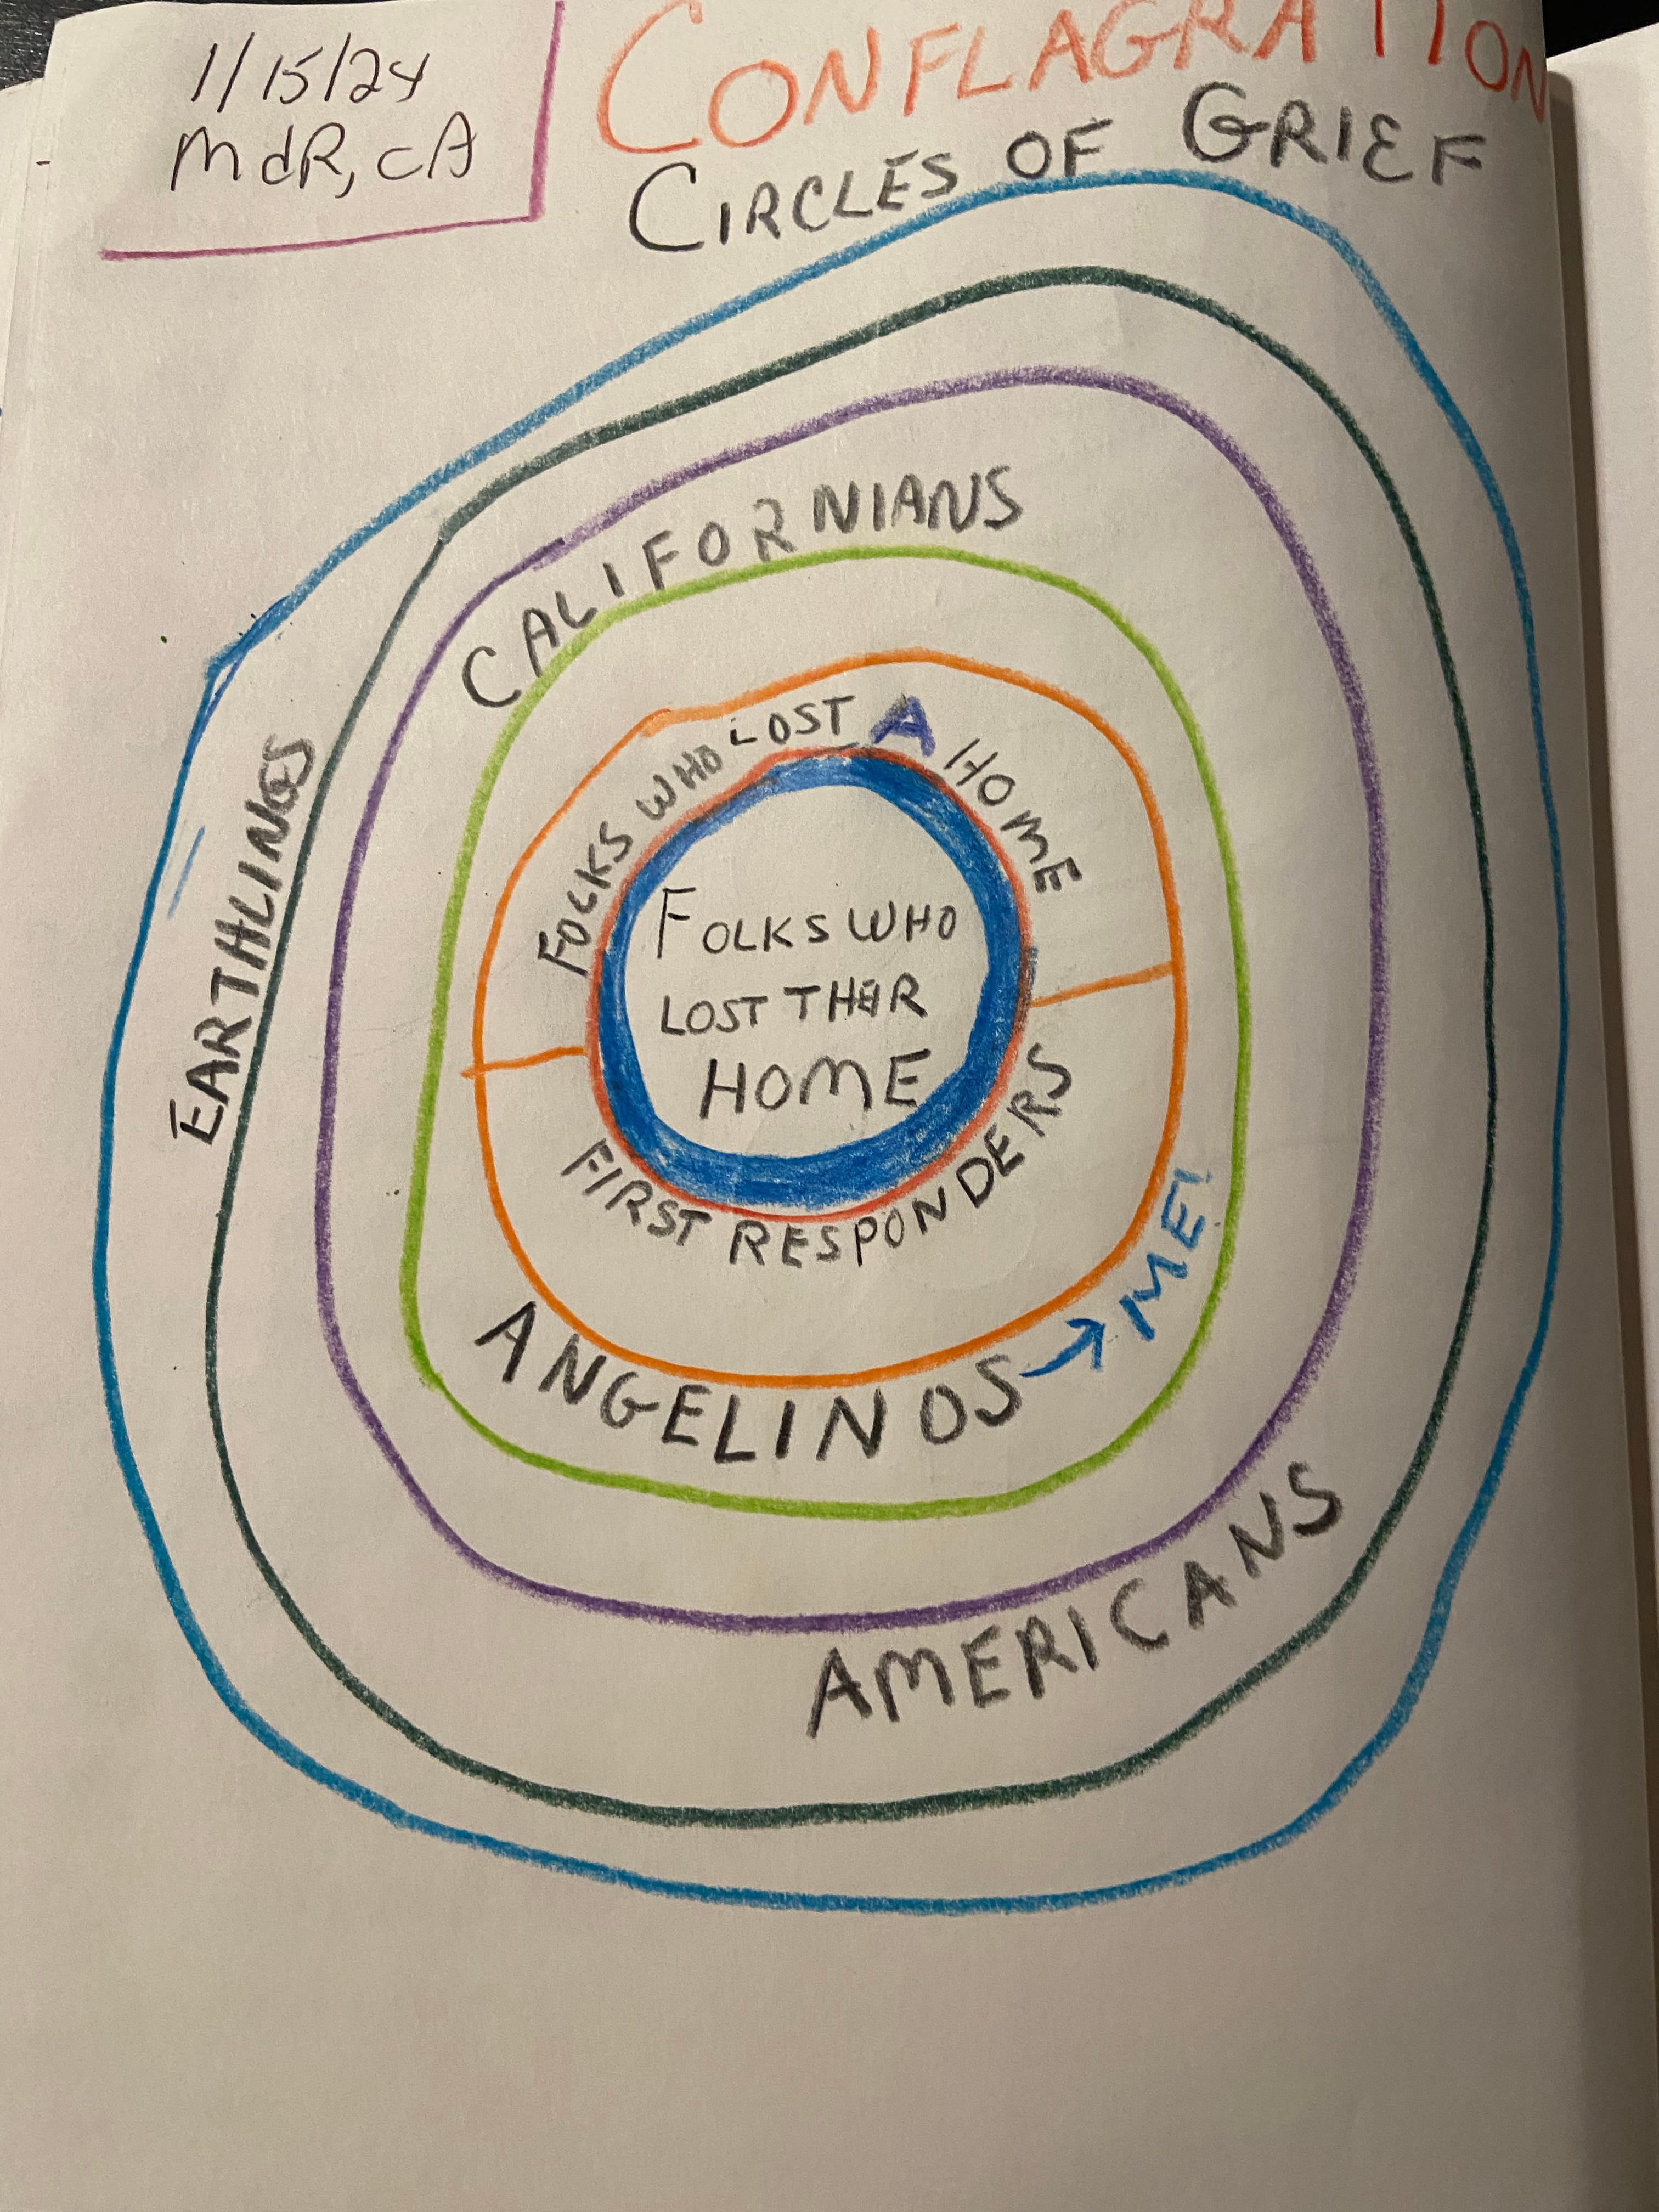 1/15/24
MdR, CA
CONFLAGRATION
CIRCLES OF GRIEF
EARTHLINGS
CALIFORNIANS
FOLKS WHO LOST A HOME
FOLKS WHO
LOST THEIR
HOME
FIRST RESPONDERS
ANGELINOS → ME!
AMERICANS